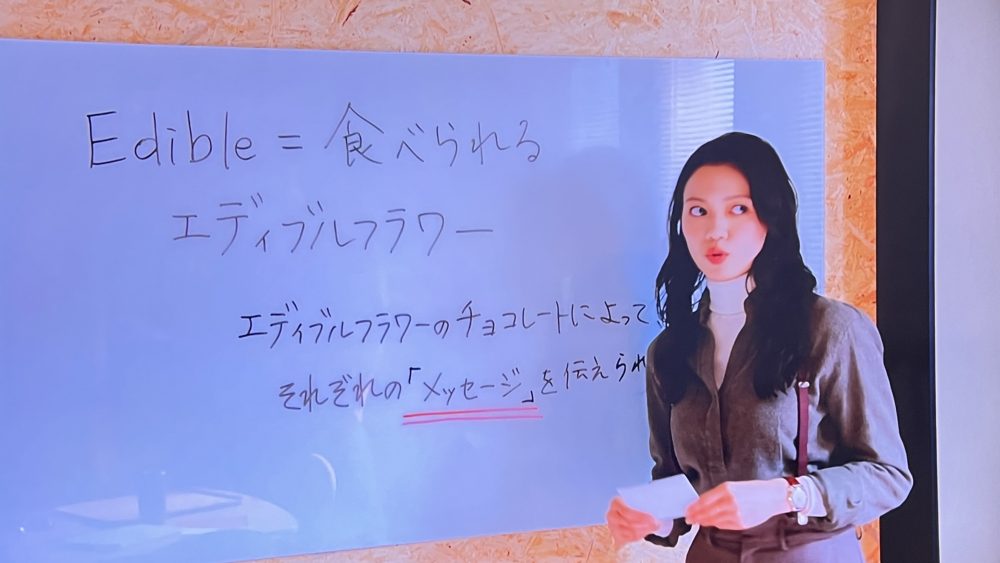 Edible = 食べられる
エディブルフラワー
エディブルフラワーのチョコレートによって、
それぞれの「メッセージ」を伝えられ